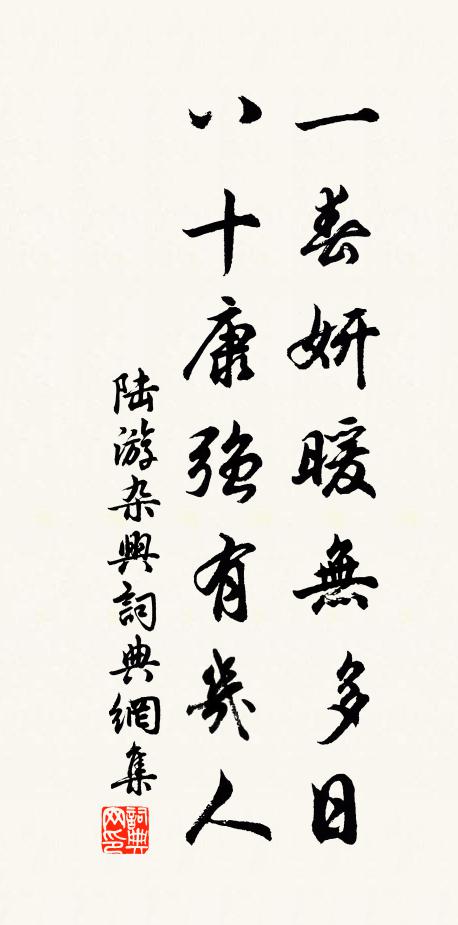 一春妍暖無多日
八十康強有幾人
陆游杂興詞典網集
詞典网印